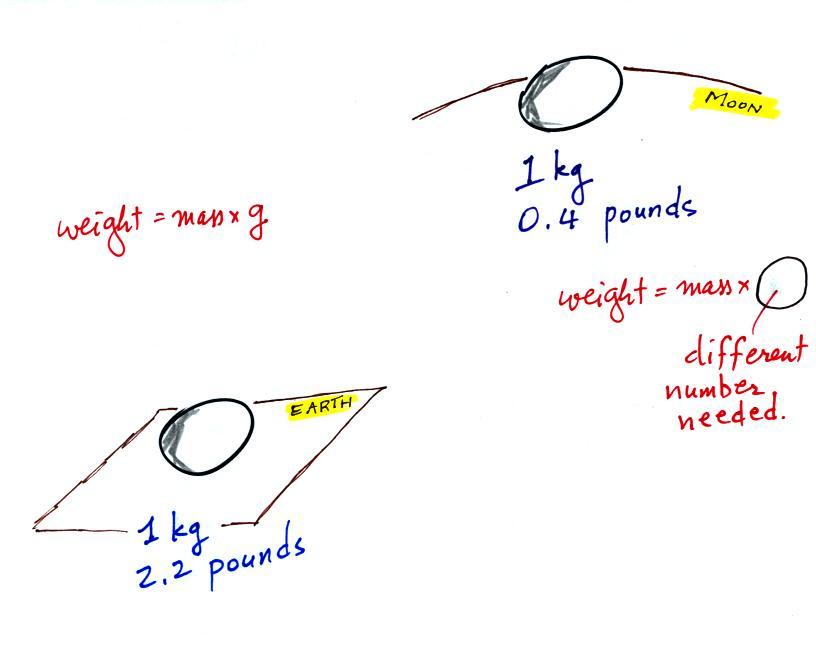 MOON
1 kg
0.4 pounds
weight = mass x g
weight = mass x
different
number
needed.
EARTH
1 kg
2.2 pounds